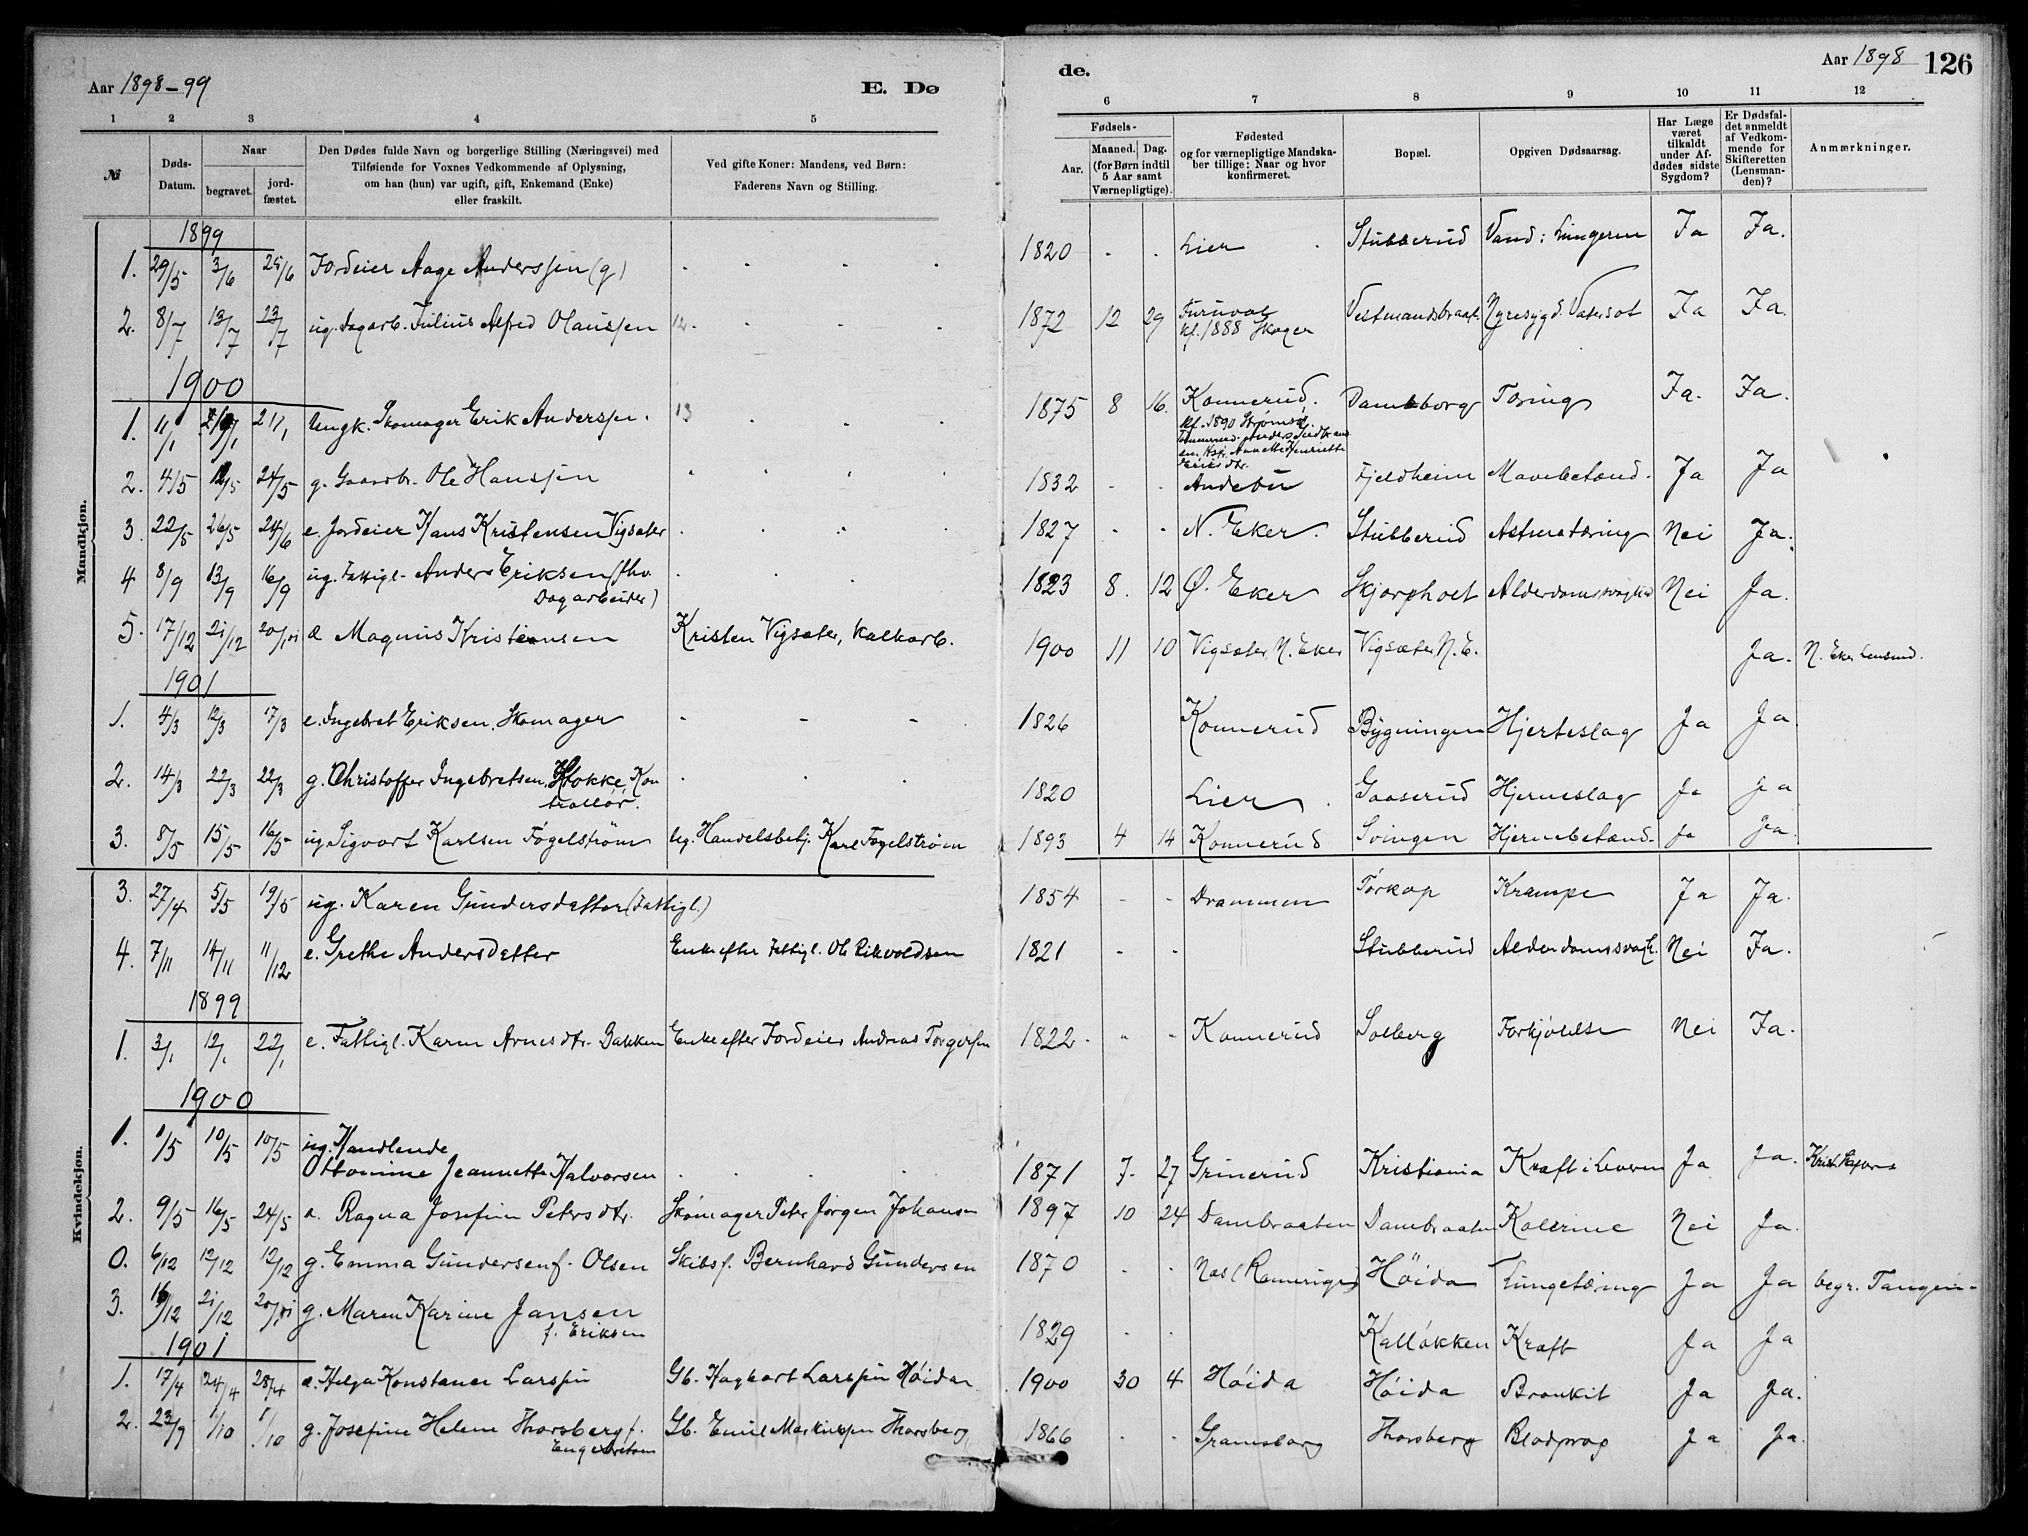 Aar 1898-99
E. Dø
de.
Aar 1898
126
1 2 3 4 5 6 7 8 9 10 11 12
№
Døds-Datum.
Naar
begravet.
jord-fæstet.
Den Dødes fulde Navn og borgerlige Stilling (Næringsvei) med
Tilføiende for Voxnes Vedkommende af Oplysning,
om han (hun) var ugift, gift, Enkemand (Enke)
eller fraskilt.
Ved gifte Koner: Mandens, ved Børn:
Faderens Navn og Stilling.
Fødsels-
Aar.
Maaned. Dag.
(for Børn indtil
5 Aar samt
Værnepligtige).
Fødested
og for værnepligtige Mandska-
ber tillige: Naar og hvor
konfirmeret.
Bopæl.
Opgiven Dødsaarsag.
Har Læge
været
tilkaldt
under Af-
dødes sidste
Sygdom?
Er Dødsfal-
det anmeldt
af Vedkom-
mende for
Skifteretten
(Lensman-
den)?
Anmærkninger.
Mandkjøn.
1899
1. 29/5 3/6 25/6 Jordeier Aage Anderssen (g) 1820 Lier Stubberud Vand i Lungerne Ja Ja.
2. 8/7 13/7 23/7 ug. Dagarb. Julius Alfred Olaussen 1872 12 29 Furuvol Kf. 1888 Skoger Vestmandsbraat. Nyresygd. Vatersot Ja Ja.
1900
1. 11/1 21/1 Ungk. Skomager Erik Anderssen. 1875 8 16. Konnerud. Kf. 1890 Strømsø Damborg Tæring Ja. Ja.
2. 4/5 12/5 24/5 g. Gaardbr. Ole Hanssen 1832 Andebu Fjeldheim Mavebetænd. Ja Ja
3. 22/5 26/5 24/6 e. Jordeier Hans Kristensen Vigsæter 1827 N. Eker. Stubberud Astmatæring Nei Ja.
4 8/9 13/9 16/9 ug. Fattigl. Anders Eriksen (fhv. Dagarbeider) 1823 8. 12 Ø. Eker Skjørpholt Alderdomssvaghd Nei Ja.
5. 17/12 21/12 20/1 01 æ Magnus Kristensen Kristen Vigsæter, Kalkarb. 1900 11 10 Vigsæter, N. Eker Vigsæter N. E. Ja. N. Eker Lensmd.
1901
1. 4/3 12/3 17/3 e. Ingebret Eriksen, Skomager 1826 Konnerud Bygningen Hjerteslag Ja Ja.
2. 14/3 22/3 22/3 g. Christoffer Ingebretsen Hokke, Kontrollør. 1820 Lier Gaaserud Hjerneslag Ja Ja
3. 8/5 15/5 16/5 ug. Sigvart Karlsen Fogelstrøm ug. Handelsbetj. Karl Fogelstrøm 1893 4 14 Konnerud Svingen Hjernebetænd. Ja Ja.
Kvindekjøn.
3. 27/4 5/5 19/5 ug. Karen Gundersdatter (Fattigl.) 1854 Drammen Tørkop Krampe Ja Ja.
4. 7/11 14/11 11/12 e. Grethe Andersdatter Enke efter Fattigl. Ole Rikvoldsen 1821 Stubberud Alderdomssvagh. Nei Ja.
1899
1. 3/1 12/1 22/1 e. Fattigl. Karen Arnesdtr. Bakken Enke efter Jordeier Andreas Torgersen 1822 Konnerud Solberg Forkjølelse Nei Ja.
1900
1. 1/5 10/5 10/5 ug. Handlende Ottomine Jeannette Halvorsen 1871 7. 27 Grinerud Kristiania Kræft i Leveren Ja Ja.
2. 9/5 16/5 24/5 æ. Ragna Josefine Petersdtr. Skomager Peter Jørgen Johansen 1897 10 24 Dambraaten Dambraaten Kolerine Nei Ja.
0. 6/12 12/12 12/12 g. Emma Gundersen f. Olsen Skibsf. Bernhard Gundersen 1870 Næs (Romerige) Høida Lungetæring Ja Ja begr. Tangen-
3. 16/12 21/12 20/1 01 g. Maren Karine Jansen f. Eriksen 1829 Kalløkken Kræft Ja Ja
1901
1. 17/4 24/4 28/4 æ. Helga Konstance Larssen Gb. Hagbart Larssen Høida 1900 30 4 Høida Høida Bronkit Ja Ja.
2. 23/9 1/10 1/10 g. Josefine Helene Thorsberg f. Engebretsen Gb. Emil Markussen Thorsberg 1866 Gramsborg Thorsberg Blodprop Ja Ja.